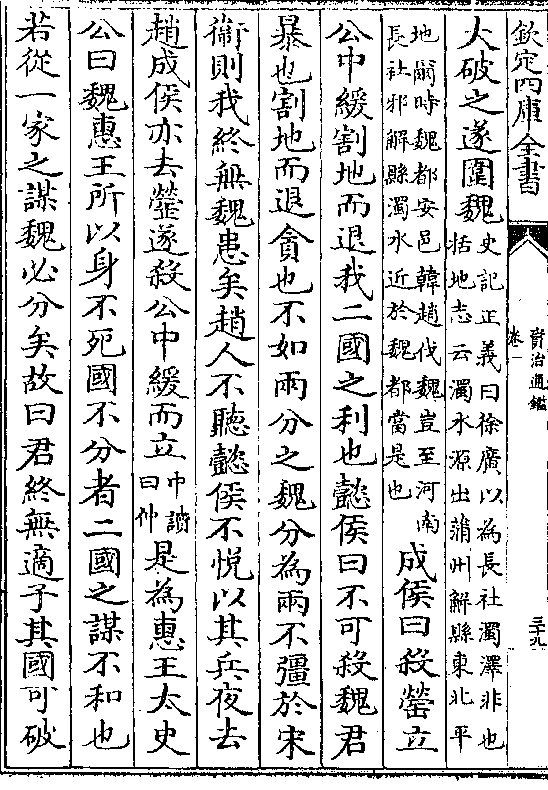 欽定四庫全書
資治通鑑
卷一
三十九
大破之遂圍魏史記正義曰徐廣以為長社濁澤非也
括地志云濁水源出蒲州解縣東北平
地爾時魏都安邑韓趙伐魏豈至河南
長社邪解縣濁水近於魏都當是也成侯曰殺罃立
公中緩割地而退我二國之利也懿侯曰不可殺魏君
暴也割地而退貪也不如兩分之魏分為兩不彊於宋
衛則我終無魏患矣趙人不聽懿侯不悅以其兵夜去
趙成侯亦去罃遂殺公中緩而立中讀
曰仲是為惠王太史
公曰魏惠王所以身不死國不分者二國之謀不和也
若從一家之謀魏必分矣故曰君終無適子其國可破